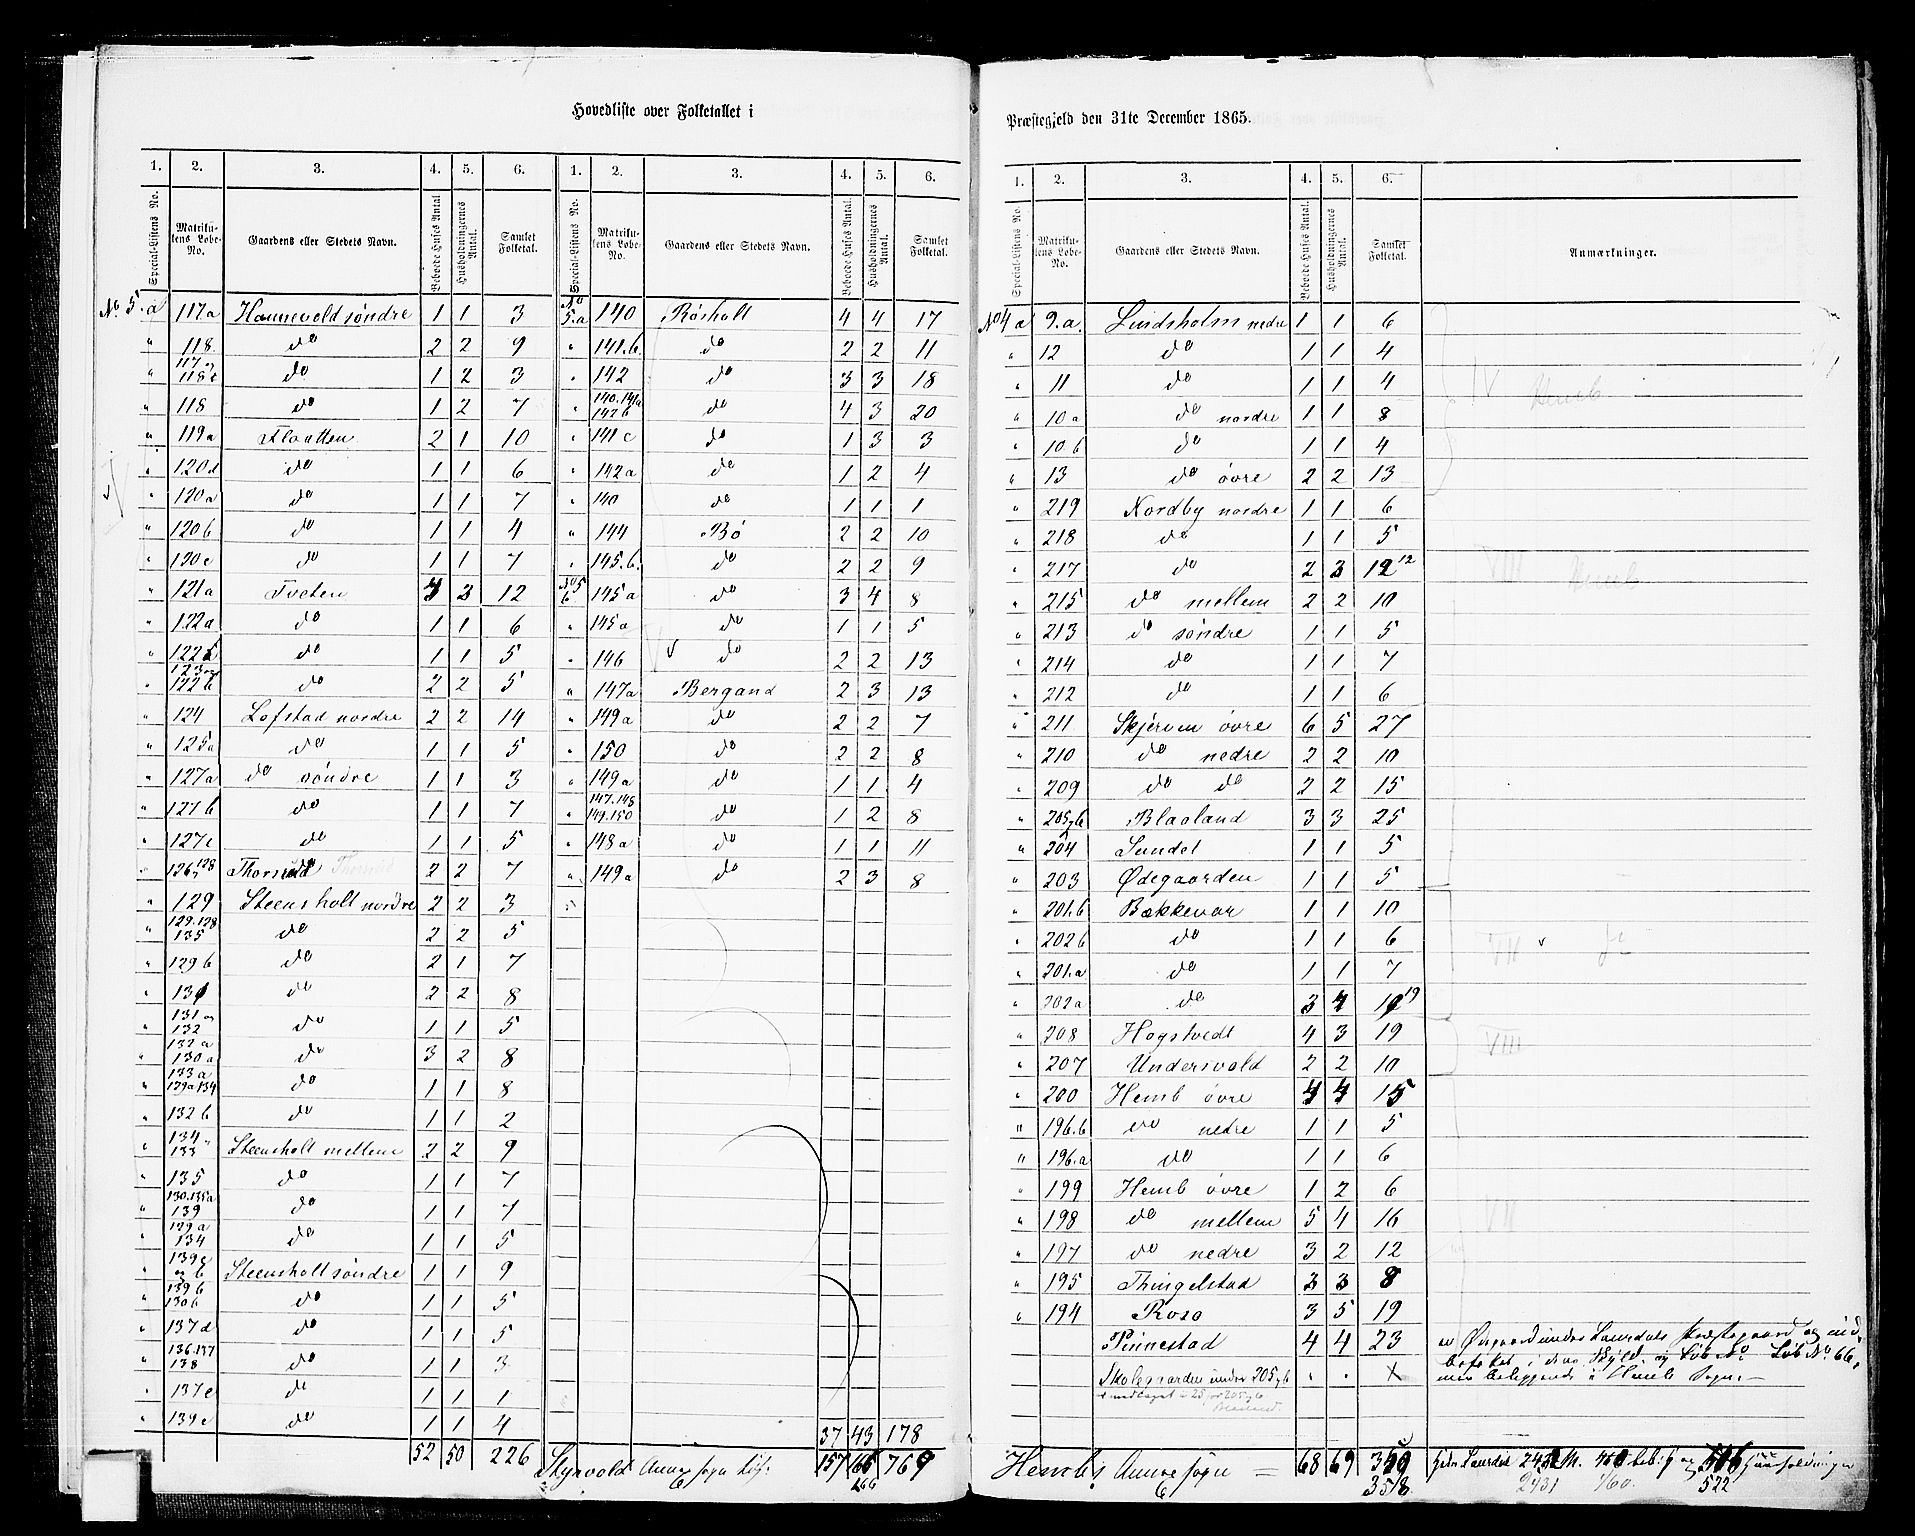 Hovedliste over Folketallet i
Præstegjeld den 31te December 1865.
1. 2. 3. 4. 5. 6. 1. 2. 3. 4. 5. 6.
Special-Listens No. Matrikulens Løbe-No. Gaardens eller Stedets Navn. Beboede Huses Antal Husholdningernes Antal. Samlet Folketal. Special-Listens No. Matrikulens Løbe-No. Gaardens eller Stedets Navn. Beboede Huses Antal. Husholdningernes Antal. Samlet Folketal.
No 5.a 117a Hanneveld søndre 1 1 3
" 118. do 2 2 9
" 117 og 118c do 1 2 3
" 118 do 1 2 7
" 119a Flaatten 2 1 10
" 120d do 1 1 6
" 120a do 1 1 7
" 120b do 1 1 4
" 120c do 1 1 7
" 121a Tveten 3 12
" 122a do 1 1 6
" 122 do 1 1 5
" 123 og 122b do 2 2 5
" 124 Lofstad nordre 2 2 14
" 125a do 1 1 5
" 127a do søndre 1 1 3
" 127b do 1 1 7
" 127c do 1 1 5
" 126 128 Thorsrud 2 2 7
" 129 Steensholt nordre 2 2 3
" 129.128 135 do 2 2 5
" 129b do 2 1 7
" 131 do 2 2 8
" 131 og 132 do 1 1 5
" 132a 130a do 3 2 8
" 133a 129a 134 do 1 1 8
" 132b do 1 1 2
" 134 133 Steensholt mellem 2 2 9
" 135 do 1 1 7
" 130.135a 139 do 1 1 7
" 129a 134 do 1 1 5
" 139c og b Steensholt søndre 1 1 9
" 139b 130b do 1 1 5
" 137d do 1 1 5
" 136.137 138 do 1 1 3
" 137c do 1 1 1
" 139c do 1 1 4
52 50 226
No 5.a 140 Røsholt 4 4 17
" 141.b. do 2 2 11
" 142 do 3 3 18
" 140.141a 142b do 4 3 20
" 141c do 1 3 3
" 142a do 1 2 4
" 140 do 1 1 1
" 144 Bø 2 2 10
" 145.b. do 2 2 9
No 5 b. 145a do 3 4 8
" 145a do 1 1 5
" 146 do 2 2 13
" 147a Bergand 2 3 13
" 149a do 2 2 7
" 150 do 2 2 8
" 149a do 1 1 4
" 147.148 149.150 do 1 2 8
" 148a do 1 1 11
" 149a do 2 3 8
37 43 178
Styrvold Annex sogn 157 166 769
266
1. 2. 3. 4. 5. 6.
Special-Listens No. Matrikulens Løbe-No. Gaardens eller Stedets Navn. Beboede Huses Antal. Husholdningernes Antal. Samlet Folketal. Anmærkninger.
No 4 a 9.a. Lindsholm nedre 1 1 6
" 12 do 1 1 4
" 11 do 1 1 4 IV Hemb
" 10a do nordre 1 1 8
" 10.b do 1 1 4
" 13 do øvre 2 2 13
" 219 Nordby nordre 1 1 6
" 218 do 1 1 5
" 217 do 2 3 12 12 VIII Hemb
" 215 do mellem 2 2 10
" 213 do søndre 1 1 5
" 214 do 1 1 7
" 212 do 1 1 6
" 211 Skjerven øvre 6 5 27
" 210 do nedre 2 2 10
" 209 do do 2 2 15
" 205,6 Blaaland 3 3 25
" 204 Sundet 1 1 5
" 203 Ødegaarden 1 1 5
" 201.b Bækkevar 1 1 10
" 202b do 1 1 6 VII
" 201.a do 1 1 7
" 202a do 3 4 19
" 208 Hogstvedt 4 3 19 VIII
" 207 Undersvold 2 2 10
" 200 Hemb øvre 4 4 15
" 196.b do nedre 1 1 5
" 196.a do 1 1 6
" 199 Hemb øvre 1 2 6
" 198 do mellem 5 4 16 VII
" 197 do nedre 3 2 12
" 195 Thingelstad 3 3 8
" 194 Roso 3 5 19
Pinnestad 4 4 23 er Ødegaard under Laurdals Præstegaard og ind-
befattet i dens Skyld og Løb No. Løb No. 66,
Skolegaarden under 205,6 " " X men beliggende i Hemb Sogn.
Hembs Annex sogn = 68 69 350
3518 2431 460. 522